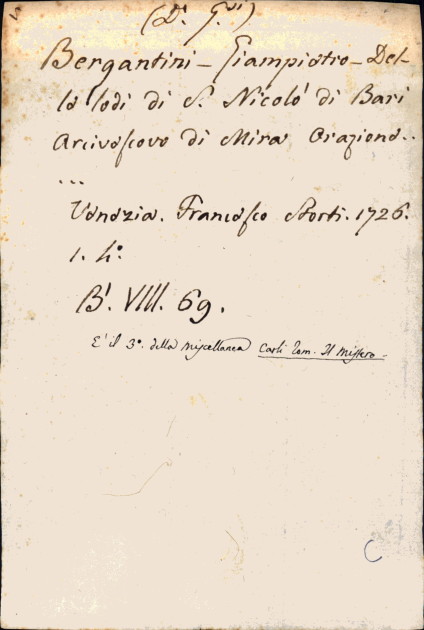 (Dⁱ. G.ᵛⁱ)
Bergantini - Giampietro - Del-
le lodi di S. Nicolò di Bari
Arcivescovo di Mira Orazione..
...
Venezia. Francesco Storti. 1726.
1. 4.º
B'. VIII. 69.
E' il 3º. della Miscellanea Carli Tom. Il Mistero -
C